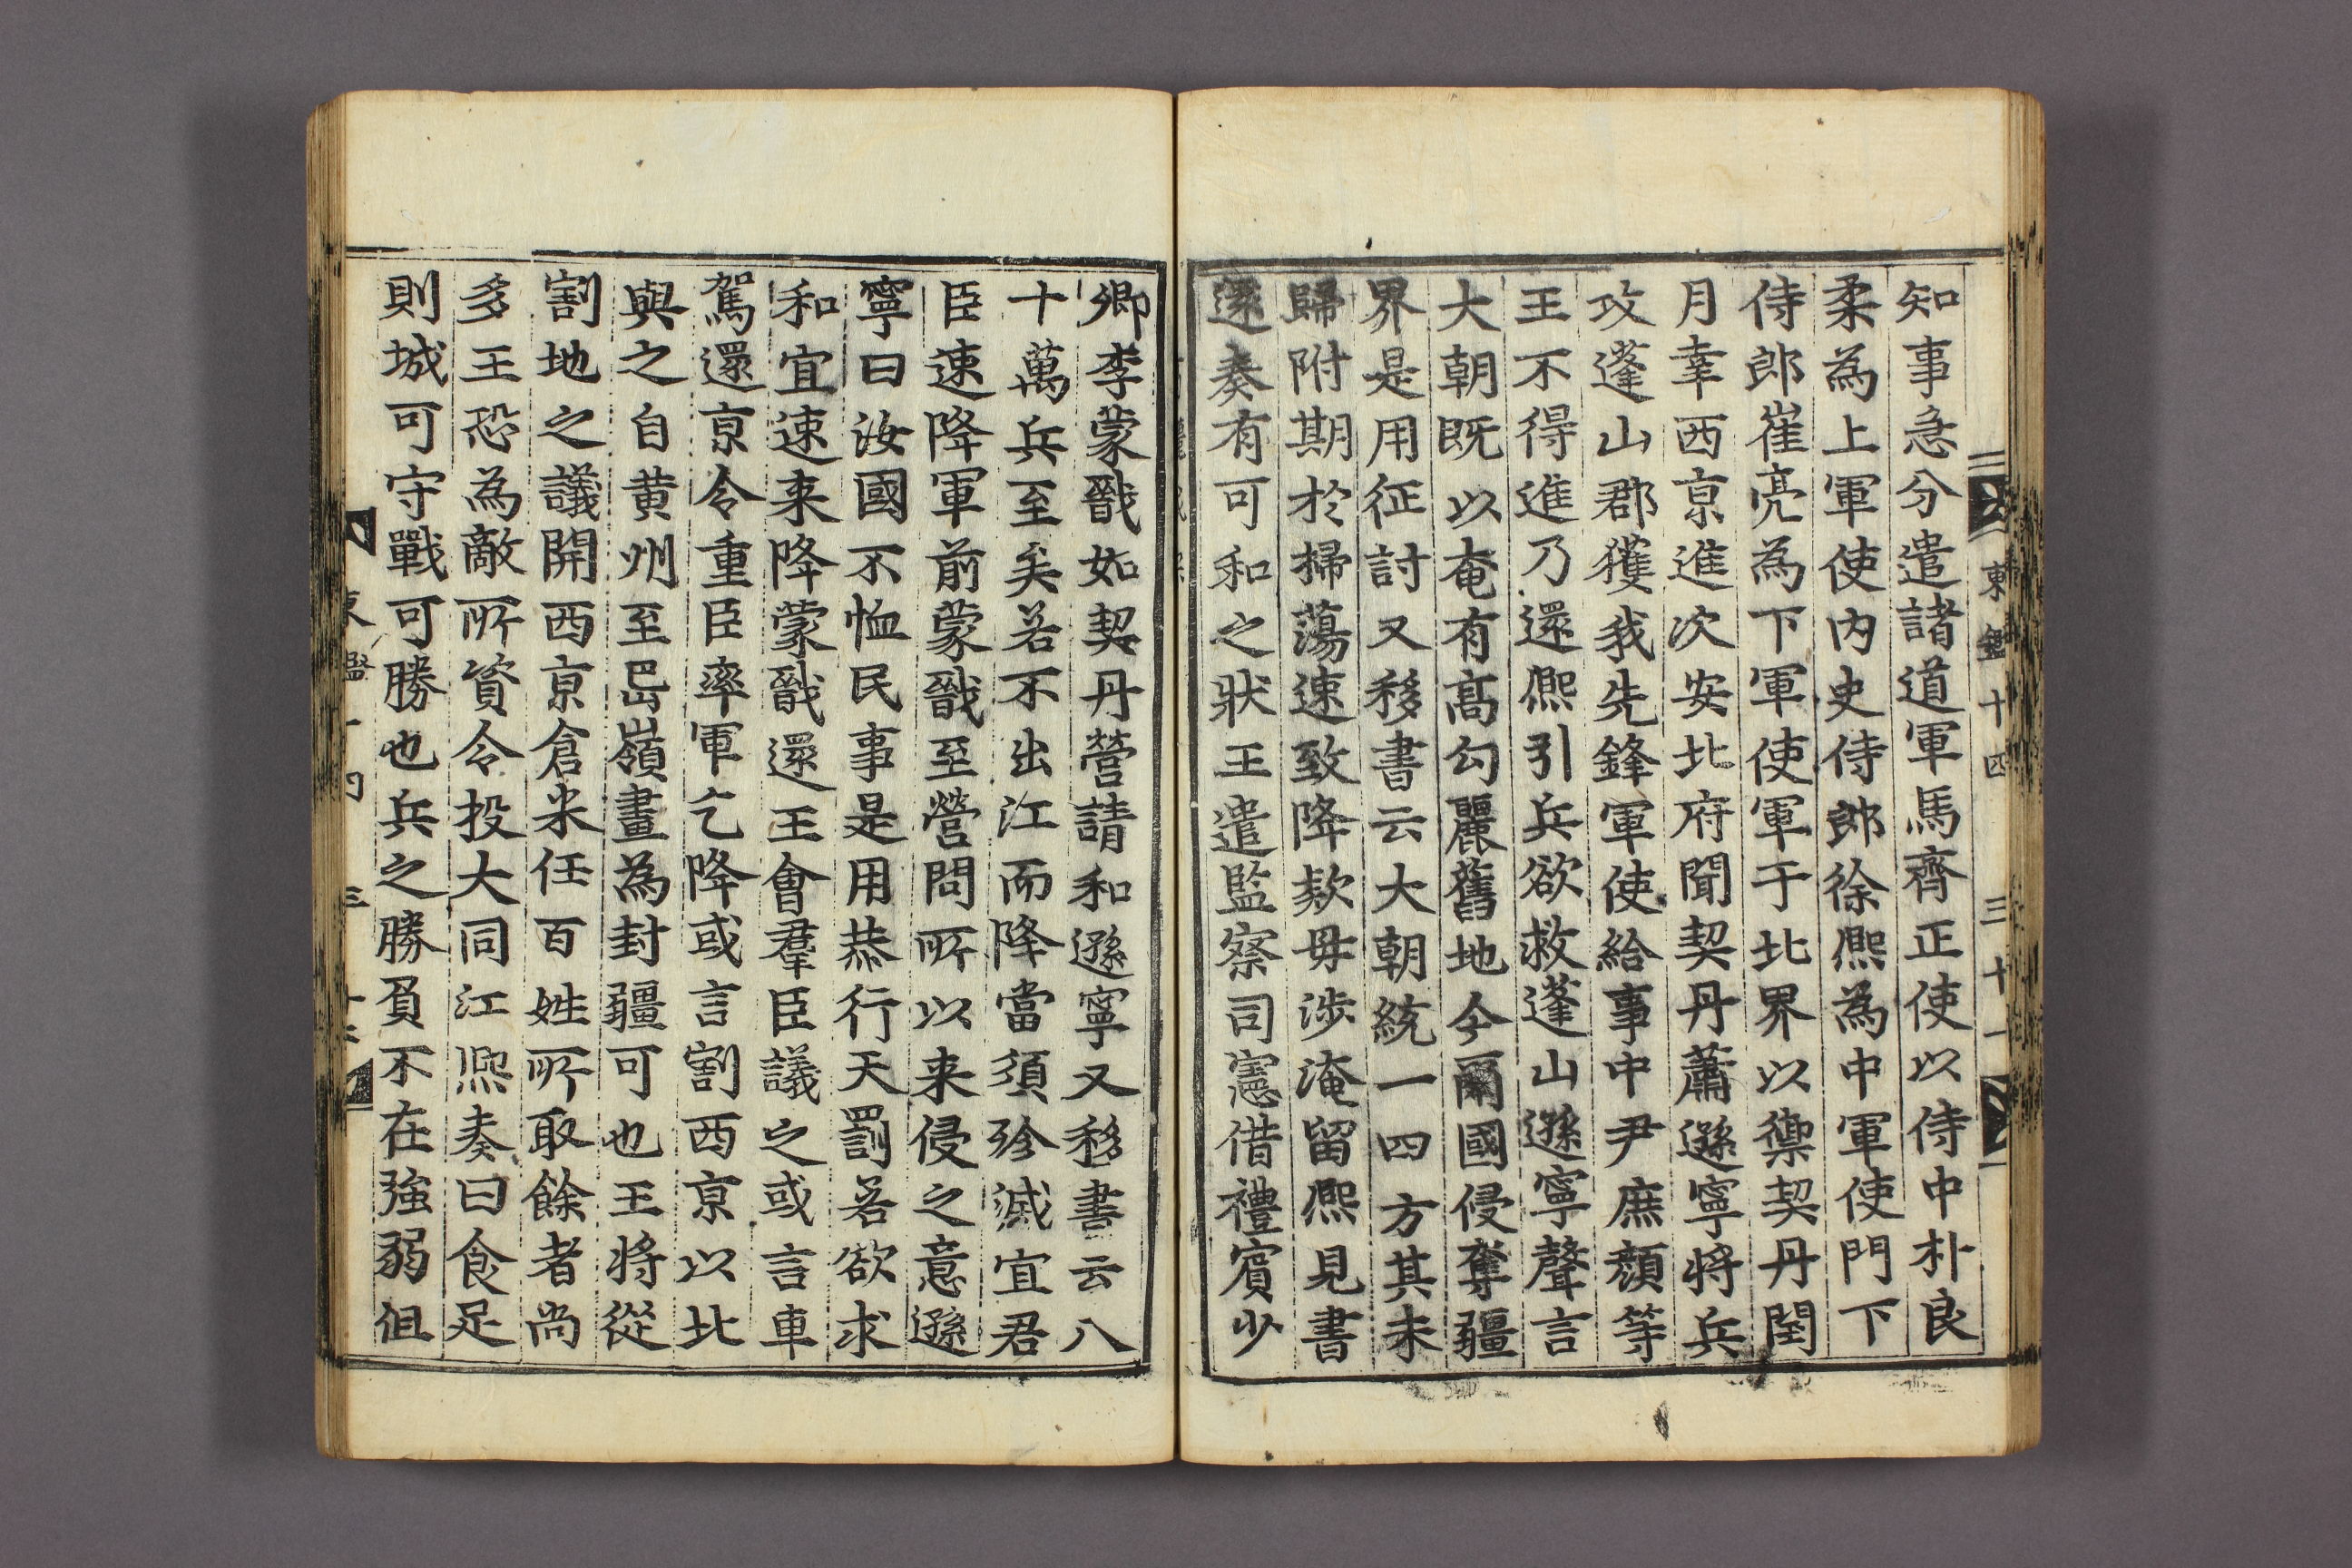 東鑑十四 三十一
知事急分遣諸道軍馬齊正使以侍中朴良
柔為上軍使内史侍郎徐熈為中軍使門下
侍郎崔亮為下軍使軍于北界以禦契丹閏
月幸西京進次安北府聞契丹蕭遜寧将兵
攻蓬山郡獲我先鋒軍使給事中尹庶顔等
王不得進乃還熈引兵欲救蓬山遜寧聲言
大朝既以奄有髙勾麗舊地今爾國侵奪疆
界是用征討又移書云大朝統一四方其未
歸附期於掃蕩速致降欵毋渉淹留熈見書
還奏有可和之狀王遣監察司憲借禮賔少
卿李蒙戩如契丹營請和遜寧又移書云八
十萬兵至矣若不出江而降當須殄滅宜君
臣速降軍前蒙戩至營問所以来侵之意遜
寧曰汝國不恤民事是用恭行天罰若欲求
和宜速来降蒙戩還王會羣臣議之或言車
駕還京令重臣率軍乞降或言割西京以北
與之自黄州至岊嶺畫為封疆可也王将從
割地之議開西京倉米任百姓所取餘者尚
多王恐為敵所資令投大同江熈奏曰食足
則城可守戰可勝也兵之勝負不在強弱但